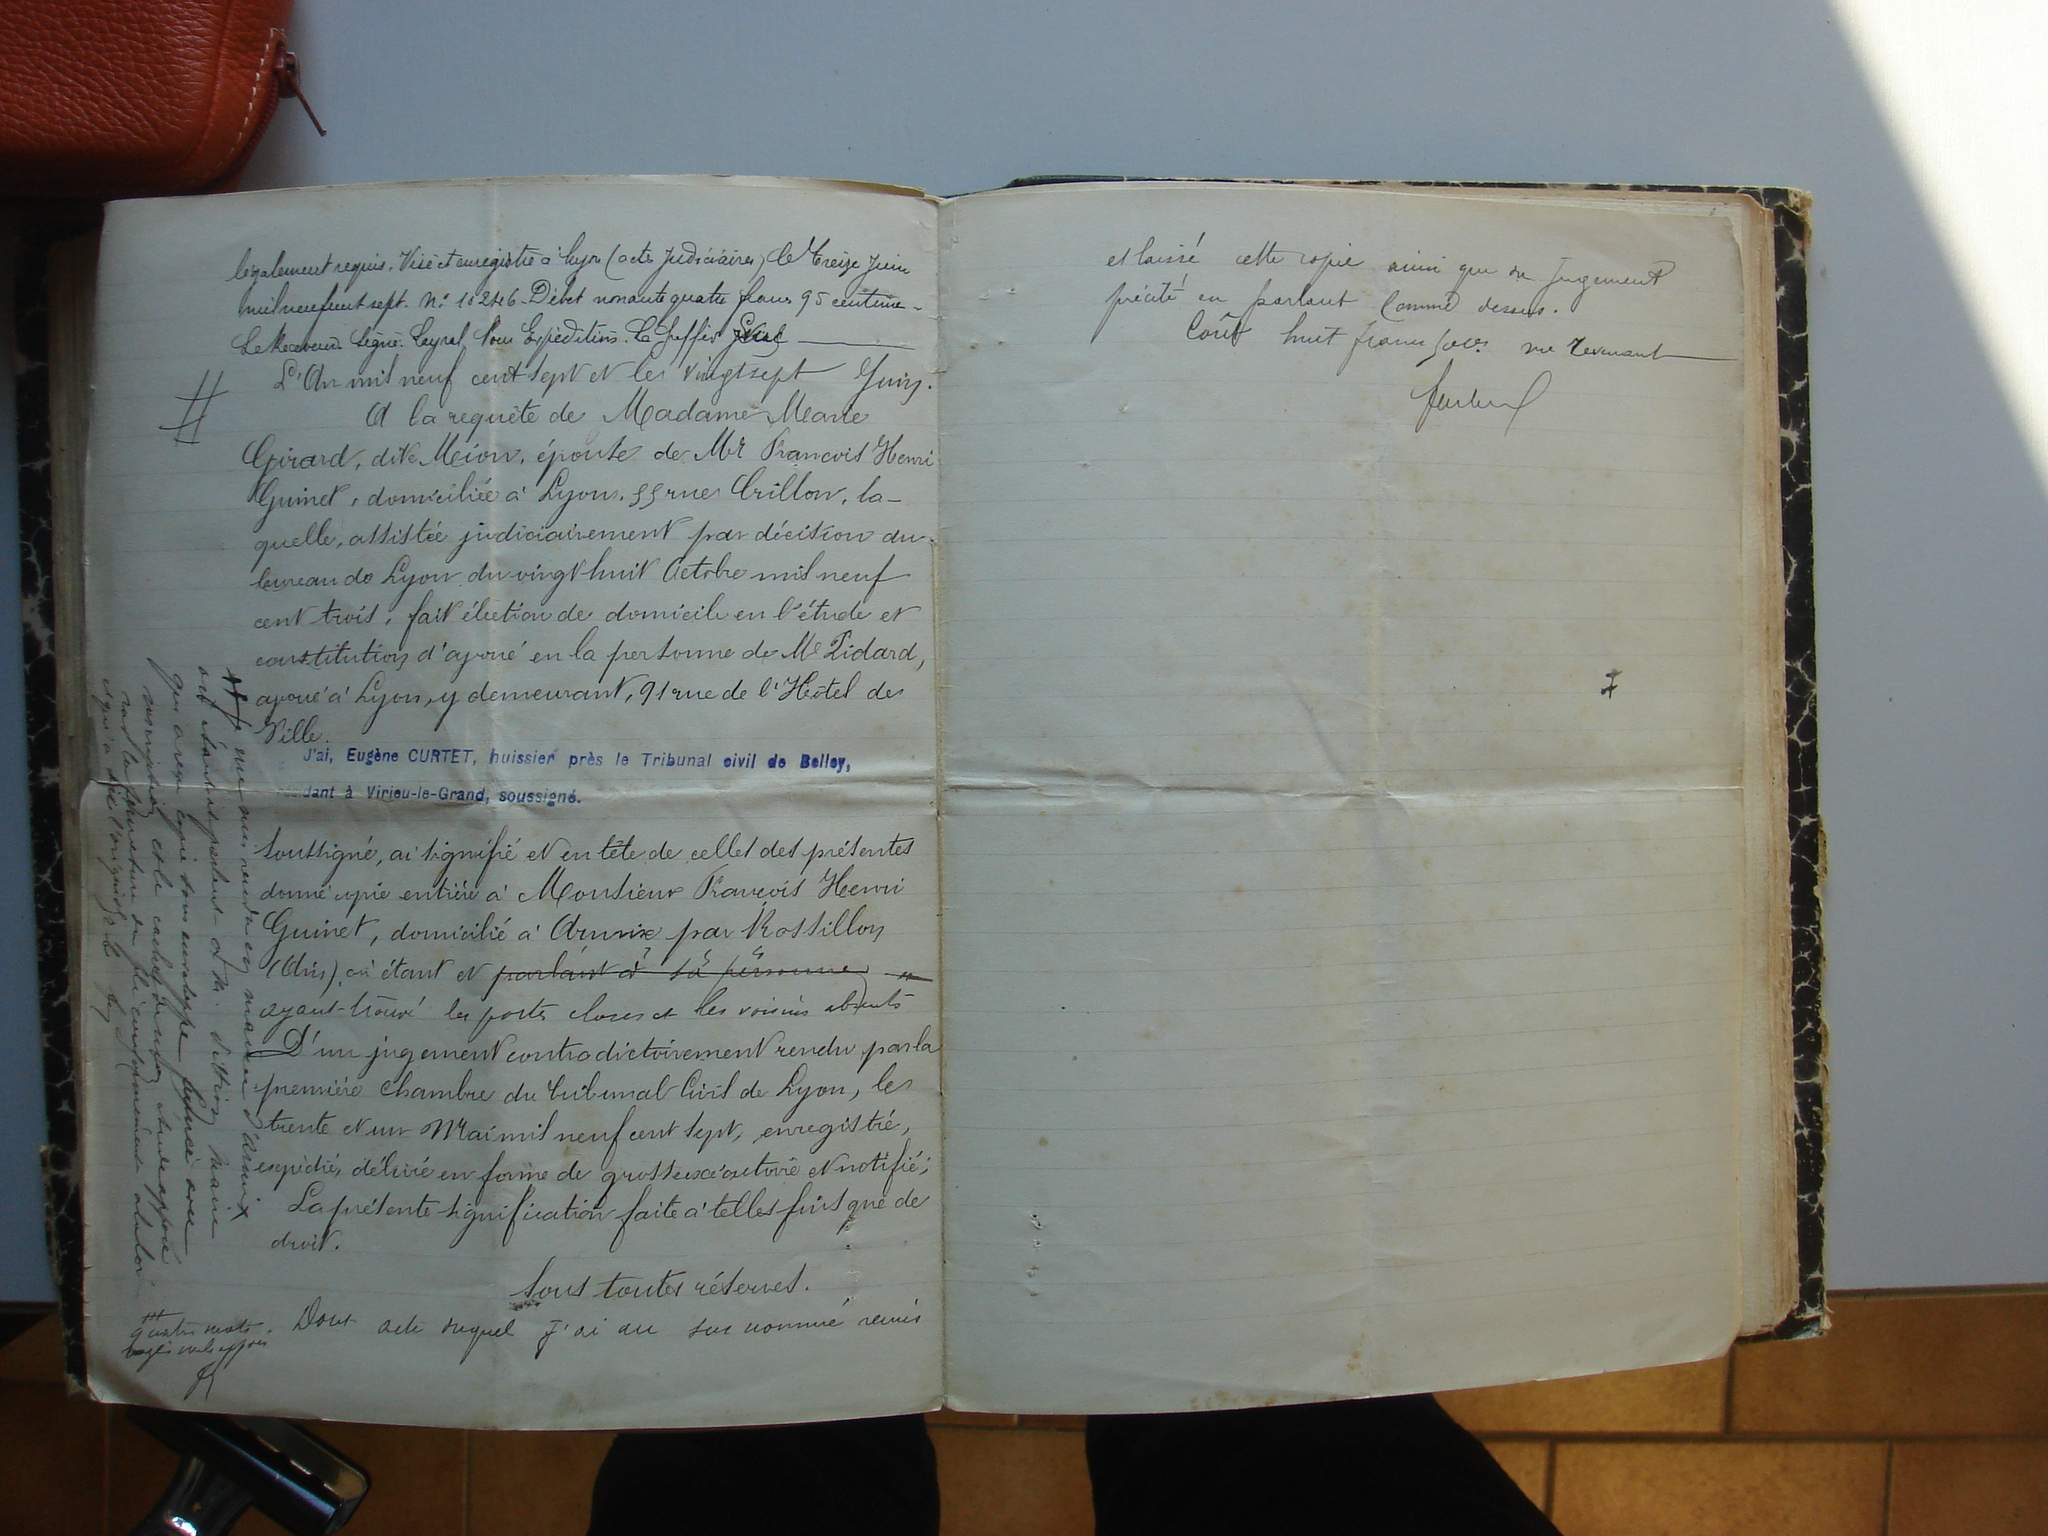 légalement requis. Visé et enregistré à Lyon (actes judiciaires) le treize Juin
mil neuf cent sept. No 10246. Débet nonante quatre francs 95 centimes
Le Receveur. Signé. Leyral Pour Expédition. Le Greffier
L'An mil neuf cent sept et les vingt sept Juin.
A la requête de Madame Marie
Girard, dite Méion, épouse de Mr François Henri
Guinet, domiciliée à Lyon, 55 rue Crillon, la-
quelle, assistée judiciairement par décision du
bureau de Lyon du vingt huit Octobre mil neuf
cent trois, fait élection de domicile en l'étude et
constitution d'avoué en la personne de Me Pidard,
avoué à Lyon, y demeurant, 91 rue de l'Hôtel de
Ville.
J'ai, Eugène CURTET, huissier près le Tribunal civil de Belley,
résidant à Virieu-le-Grand, soussigné.
Soussigné, ai signifié et en tête de celles des présentes
donné copie entière à Monsieur François Henri
Guinet, domicilié à Armix par Rossillon
(Ain), où étant et parlant à sa personne
ayant trouvé les portes closes et les voisins absents
D'un jugement contradictoirement rendu par la
première Chambre du tribunal Civil de Lyon, le
trente et un Mai mil neuf cent sept, enregistré,
expédié, délivré en forme de grosse exécutoire et notifié;
La présente signification faite à telles fins que de
droit.
Sous toutes réserves.
Dont acte duquel j'ai au sus nommé remis
je me suis rendu en mairie d'Armix
où étant et parlant à M. maire
qui a reçu copie sous enveloppe fermée avec
suscription et le cachet de mon étude apposé
sur la fermeture du pli conformément à la loi
et qui a visé l'original
quatre mots
rayés nuls
et laissé cette copie ainsi que du Jugement
précité en parlant Comme dessus.
Coût huit francs